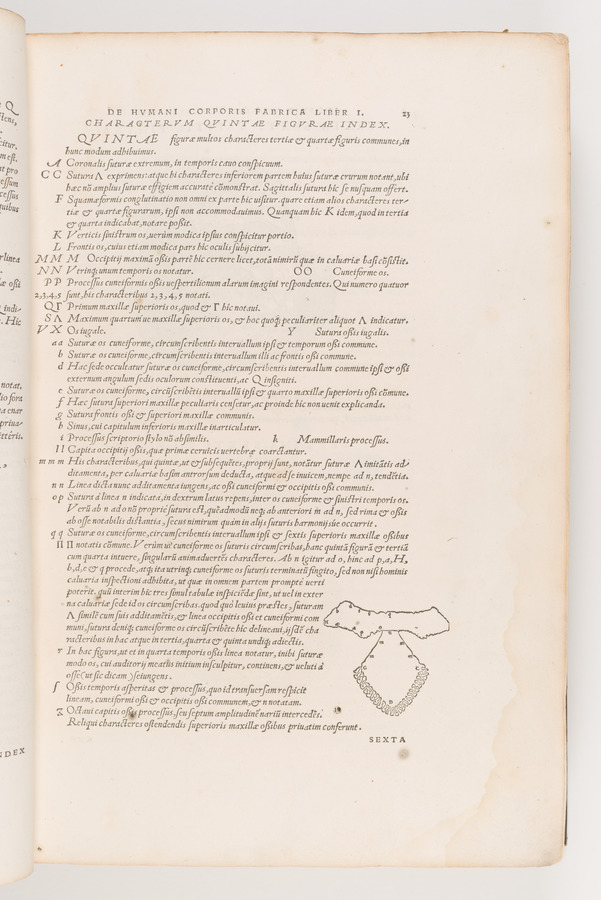 DE HVMANI CORPORIS FABRICA LIBER I. 23
CHARACTERVM QVINTAE FIGVRAE INDEX.
QVINTAE figuræ multos characteres tertiæ & quartæ figuris communes, in
hunc modum adhibuimus.
A Coronalis suturæ extremum, in temporis cauo conspicuum.
C C Sutura Λ exprimens: atque hi characteres inferiorem partem huius suturæ crurum notant, ubi
hæc nō amplius suturæ effigiem accuratè cōmonstrat. Sagittalis sutura hic se nusquam offert.
F Squamæformis conglutinatio non omni ex parte hic uisitur. quare etiam alios characteres ter-
tiæ & quartæ figurarum, ipsi non accommodauimus. Quanquam hic K idem, quod in tertia
& quarta indicabat, notare possit.
K Verticis sinistrum os, uerùm modica ipsius conspicitur portio.
L Frontis os, cuius etiam modica pars hic oculis subijcitur.
M M M Occipitij maximā oßis partē hic cernere licet, totā nimirū quæ in caluariæ basi cōsistit.
N N Vtrinq; unum temporis os notatur. O O Cuneiforme os.
P P Processus cuneiformis oßis uespertilionum alarum imagini respondentes. Qui numero quatuor
2,3,4,5 sunt, his characteribus 2, 3, 4, 5 notati.
Q Γ Primum maxillæ superioris os, quod & Γ hic notaui.
S Λ Maximum quartum'ue maxillæ superioris os, & hoc quoq; peculiariter aliquot Λ indicatur.
V X Os iugale. Y Sutura oßis iugalis.
a a Suturæ os cuneiforme, circumscribentis interuallum ipsi & temporum oßi commune.
b Suturæ os cuneiforme, circumscribentis interuallum illi ac frontis oßi commune.
d Hac sede occultatur suturæ os cuneiforme, circumscribentis interuallum commune ipsi & oßi
externum angulum sedis oculorum constituenti, ac Q insigniti.
e Suturæ os cuneiforme, circūscribētis interuallū ipsi & quarto maxillæ superioris oßi cōmune.
f Hæc sutura superioris maxillæ peculiaris censetur, ac proinde hic non uenit explicanda.
g Sutura frontis oßi & superiori maxillæ communis.
h Sinus, cui capitulum inferioris maxillæ inarticulatur.
i Processus scriptorio stylo nō absimilis. k Mammillaris processus.
l l Capita occipitij oßis, quæ primæ ceruicis uertebræ coarctantur.
m m m His characteribus, qui quintæ, ut & subsequētes, proprij sunt, notātur suturæ Λ imitātis ad-
ditamenta, per caluariæ basim antrorsum deducta, atque ad se inuicem, nempe ad n, tendētia.
n n Linea dicta nunc additamenta iungens, ac oßi cuneiformi & occipitis oßi communis.
o p Sutura à linea n indicata, in dextrum latus repens, inter os cuneiforme & sinistri temporis os.
Verū ab n ad o nō propriè sutura est, quēadmodū neq; ab anteriori m ad n, sed rima & oßis
ab osse notabilis distantia, secus nimirum quàm in alijs suturis harmonijs'ue occurrit.
q q Suturæ os cuneiforme, circumscribentis interuallum ipsi & sextis superioris maxillæ oßibus
Π Π notatis cōmune. Verùm ut cuneiforme os suturis circumscribas, hanc quintā figurā & tertiā
cum quarta intuere, singularū animaduertēs characteres. Ab n igitur ad o, hinc ad p, a, H,
b, d, e & q procede, atq; ita utrinq; cuneiforme os suturis terminatū fingito, sed non nisi hominis
caluaria inspectioni adhibita, ut quæ in omnem partem promptè uerti
poterit. quū interim hic tres simul tabulæ inspiciēdæ sint, ut uel in exter
na caluariæ sede id os circumscribas. quod quò leuius præstes, suturam
Λ similē cum suis additamētis, & linea occipitis oßi et cuneiformi com
muni, sutura deniq; cuneiforme os circūscribēte hic delineaui, ijsdē cha
racteribus in hac atque in tertia, quarta & quinta undiq; adiectis.
r In hac figura, ut et in quarta temporis oßis linea notatur, inibi suturæ
modo os, cui auditorij meatus initium insculpitur, continens, & ueluti ab
osse (ut sic dicam) seiungens.
ſ Oßis temporis asperitas & processus, quo id transuersam respicit
lineam, cuneiformi oßi & occipitis oßi communem, & n notatam.
Octaui capitis oßis processus, seu septum amplitudinē nariū intercedēs.
Reliqui characteres ostendendis superioris maxillæ oßibus priuatim conferunt.
SEXTA